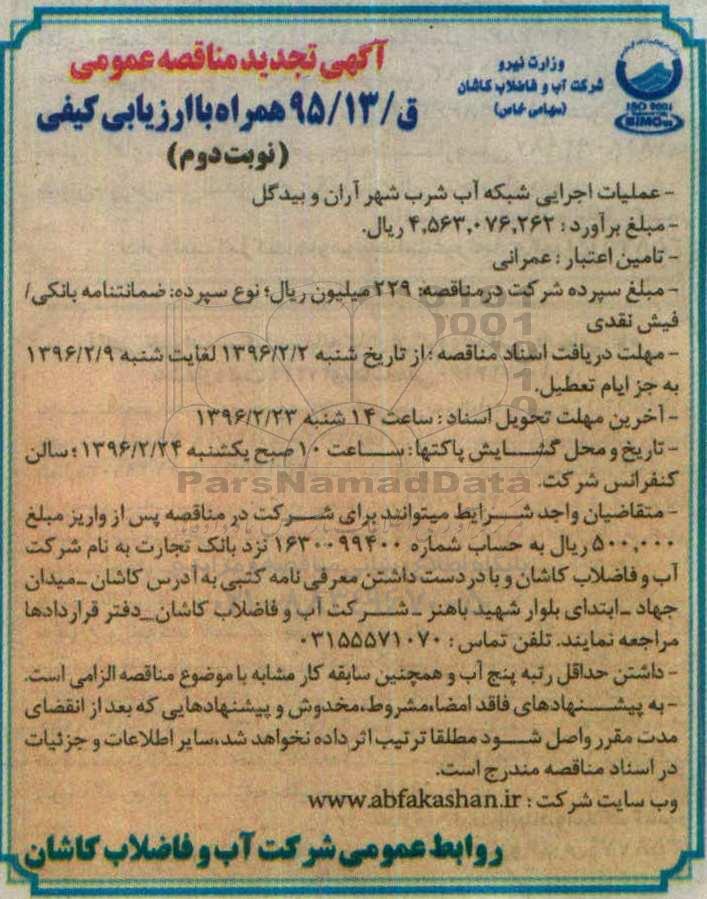 وزارت نیرو
شرکت آب و فاضلاب کاشان
(سهامی خاص)
ISO 9001
آگهی تجدید مناقصه عمومی
ق/۹۵/۱۳ همراه با ارزیابی کیفی
(نوبت دوم)
- عملیات اجرایی شبکه آب شرب شهر آران و بیدگل
- مبلغ برآورد : ۴,۵۶۳,۰۷۶,۲۶۲ ریال.
- تامین اعتبار : عمرانی
- مبلغ سپرده شرکت درمناقصه: ۲۲۹ میلیون ریال؛ نوع سپرده: ضمانتنامه بانکی/
فیش نقدی
- مهلت دریافت اسناد مناقصه : از تاریخ شنبه ۱۳۹۶/۲/۲ لغایت شنبه ۱۳۹۶/۲/۹
به جز ایام تعطیل.
- آخرین مهلت تحویل اسناد : ساعت ۱۴ شنبه ۱۳۹۶/۲/۲۳
- تاریخ و محل گشایش پاکتها : ساعت ۱۰ صبح یکشنبه ۱۳۹۶/۲/۲۴ ؛ سالن
کنفرانس شرکت.
ParsNamadData
- متقاضیان واجد شرایط میتوانند برای شرکت در مناقصه پس از واریز مبلغ
۵۰۰,۰۰۰ ریال به حساب شماره ۱۶۳۰۰۹۹۴۰۰ نزد بانک تجارت به نام شرکت
آب و فاضلاب کاشان و با در دست داشتن معرفی نامه کتبی به آدرس کاشان ـ میدان
جهاد ـ ابتدای بلوار شهید باهنر ـ شرکت آب و فاضلاب کاشان ـ دفتر قراردادها
مراجعه نمایند. تلفن تماس : ۰۳۱۵۵۵۷۱۰۷۰
- داشتن حداقل رتبه پنج آب و همچنین سابقه کار مشابه با موضوع مناقصه الزامی است.
- به پیشنهادهای فاقد امضا،مشروط،مخدوش و پیشنهادهایی که بعد از انقضای
مدت مقرر واصل شود مطلقا ترتیب اثر داده نخواهد شد،سایر اطلاعات و جزئیات
در اسناد مناقصه مندرج است.
وب سایت شرکت : www.abfakashan.ir
روابط عمومی شرکت آب و فاضلاب کاشان